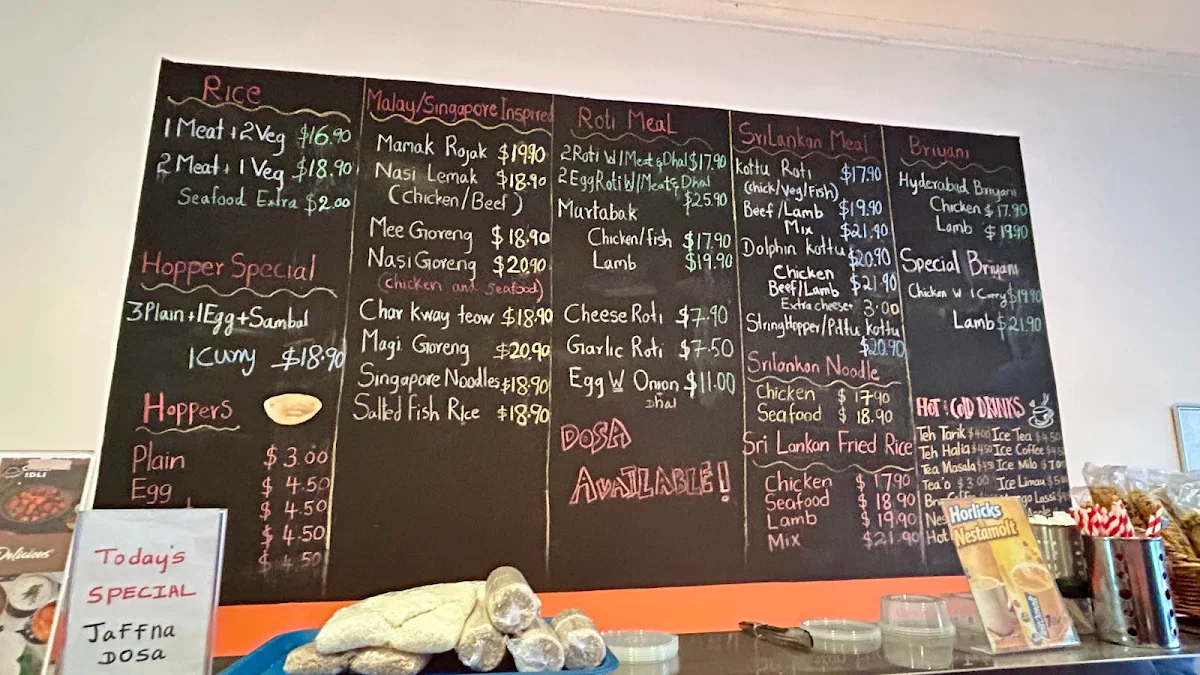 Rice
1 Meat + 2 Veg $16.90
2 Meat + 1 Veg $18.90
Seafood Extra $2.00
Hopper Special
3 Plain + 1 Egg + Sambal
1 Curry $18.90
Hoppers
Plain $3.00
Egg $4.50
$4.50
$4.50
$4.50
Malay/Singapore Inspired
Mamak Rojak $19.90
Nasi Lemak $18.90
(Chicken/Beef)
Mee Goreng $18.90
Nasi Goreng $20.90
(chicken and seafood)
Char kway teow $18.90
Magi Goreng $20.90
Singapore Noodles $18.90
Salted Fish Rice $18.90
Roti Meal
2 Roti W/Meat & Dhal $17.90
2 Egg Roti W/Meat & Dhal
$25.90
Murtabak
Chicken/fish $17.90
Lamb $19.90
Cheese Roti $7.90
Garlic Roti $7.50
Egg W Onion $11.00
Dhal
DOSA
AVAILABLE!
SriLankan Meal
Kottu Roti $17.90
(chick/Veg/Fish)
Beef/Lamb $19.90
Mix $21.90
Dolphin Kottu $20.90
Chicken
Beef/Lamb $21.90
Extra cheese 3.00
StringHopper/Pittu Kottu
$20.90
Srilankan Noodle
Chicken $17.90
Seafood $18.90
Sri Lankan Fried Rice
Chicken $17.90
Seafood $18.90
Lamb $19.90
Mix $21.90
Briyani
Hyderabad Briyani
Chicken $17.90
Lamb $19.90
Special Briyani
Chicken W 1 Curry $19.90
Lamb $21.90
HOT & COLD DRINKS
Teh Tarik $4.00 Ice Tea $4.50
Teh Halia $4.50 Ice Coffee
Tea Masala Ice Milo
Tea'o $3.00 Ice Limau
Lassi
Hot
IDLI
Delicious
Today's
SPECIAL
Jaffna
DOSA
Horlicks
Nestamolt